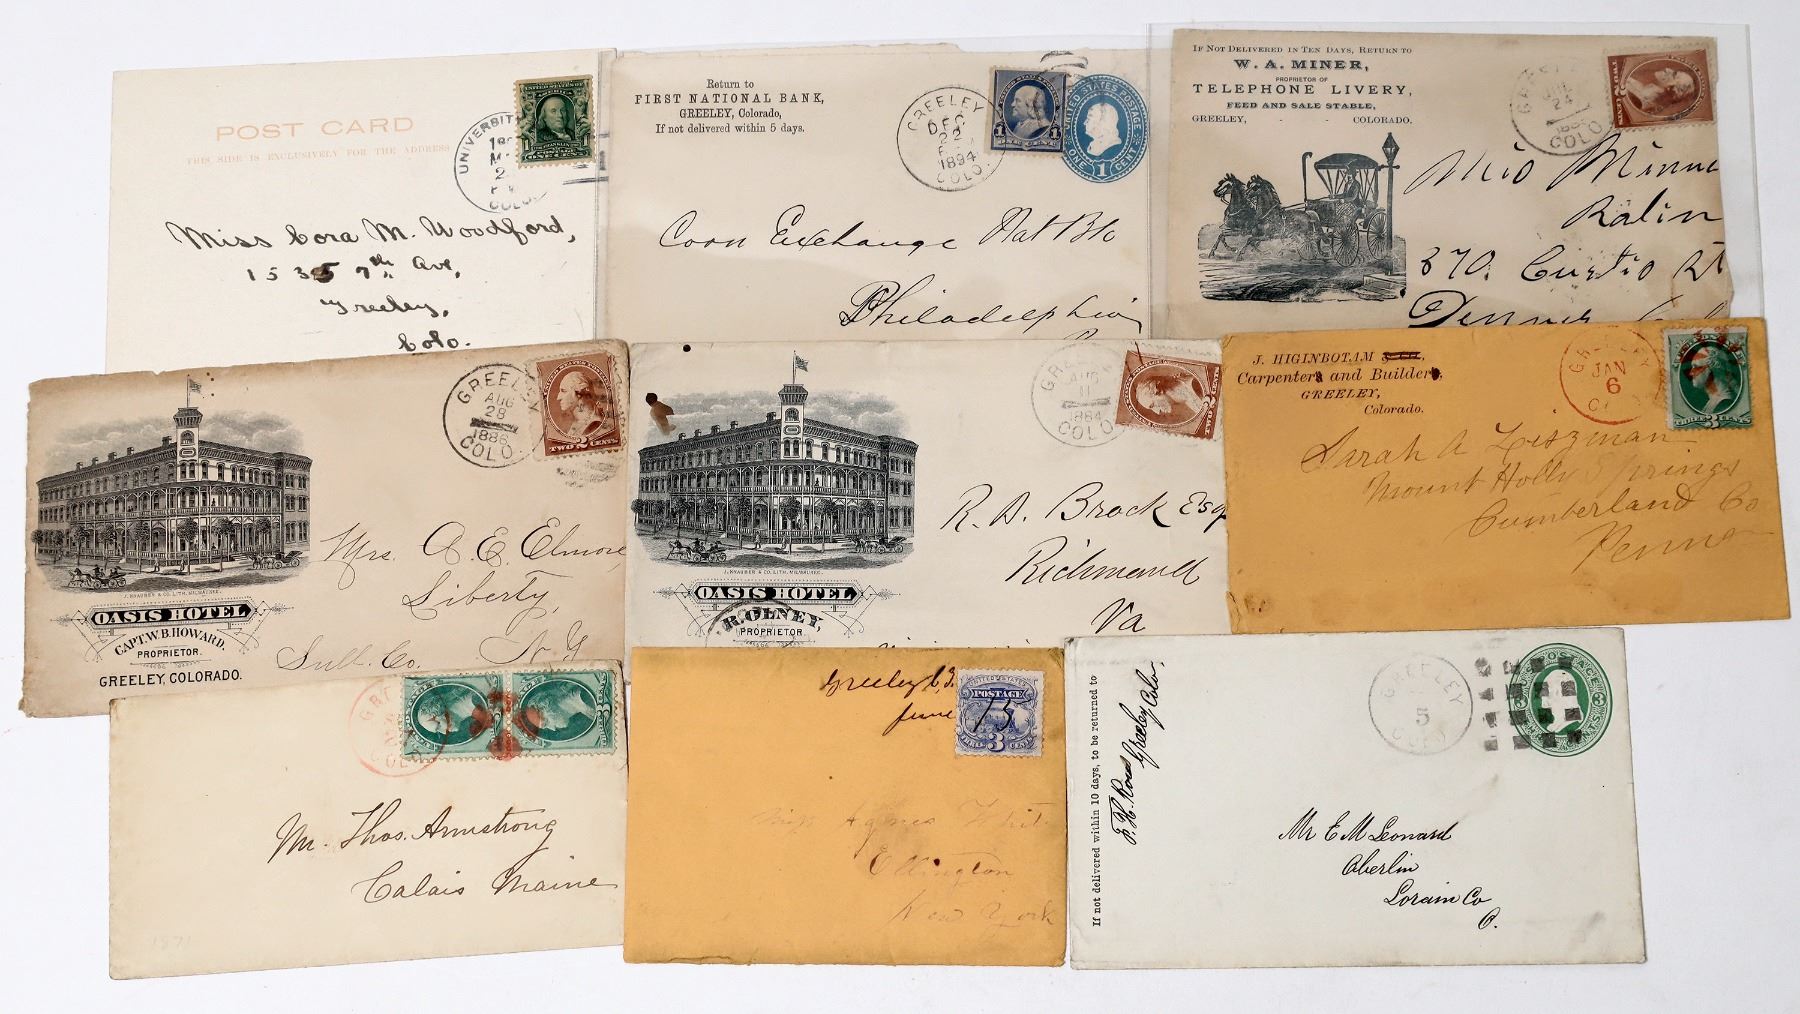 POST CARD
THIS SIDE IS EXCLUSIVELY FOR THE ADDRESS
UNIVERSITY
COLO.
UNITED STATES OF AMERICA
ONE CENT
Miss Cora M. Woodford,
1535 7th Ave,
Greeley,
Colo.
Return to
FIRST NATIONAL BANK,
GREELEY, Colorado,
If not delivered within 5 days.
GREELEY
DEC
22
1894
COLO.
1 1
ONE CENT
UNITED STATES POSTAGE
ONE 1 CENT
Corn Exchange Nat Bk
Philadelphia
IF NOT DELIVERED IN TEN DAYS, RETURN TO
W. A. MINER,
PROPRIETOR OF
TELEPHONE LIVERY,
FEED AND SALE STABLE,
GREELEY, - - COLORADO.
24
COLO
Miss Minn
Ralin
370. Curtis St
Denver
GREELEY
AUG
28
1886
COLO
TWO 2 CENTS
J. KNAUBER & CO. LITH. MILWAUKEE.
OASIS HOTEL
CAPT. W. B. HOWARD.
PROPRIETOR.
GREELEY, COLORADO.
Mrs. A. E. Elmore
Liberty,
Sull. Co. N. Y.
GREELEY
AUG
11
1884
COLO
J. KNAUBER & CO. LITH. MILWAUKEE.
OASIS HOTEL
R. OLNEY,
PROPRIETOR
R. A. Brock Esq
Richmond
Va
J. HIGINBOTAM
Carpenter and Builder,
GREELEY,
Colorado.
GREELEY
JAN
6
3
Sarah A Liszman
Mount Holly Springs
Cumberland Co
Penna
3
Mr. Thos. Armstrong
Calais Maine
1871
Greeley C.T.
June 15
UNITED STATES
POSTAGE
3 CENTS
Miss Agnes White
Ellington
New York
If not delivered within 10 days, to be returned to
Greeley Colo,
GREELEY
5
COLO
POSTAGE
3
Mr E M Leonard
Oberlin
Lorain Co
O.